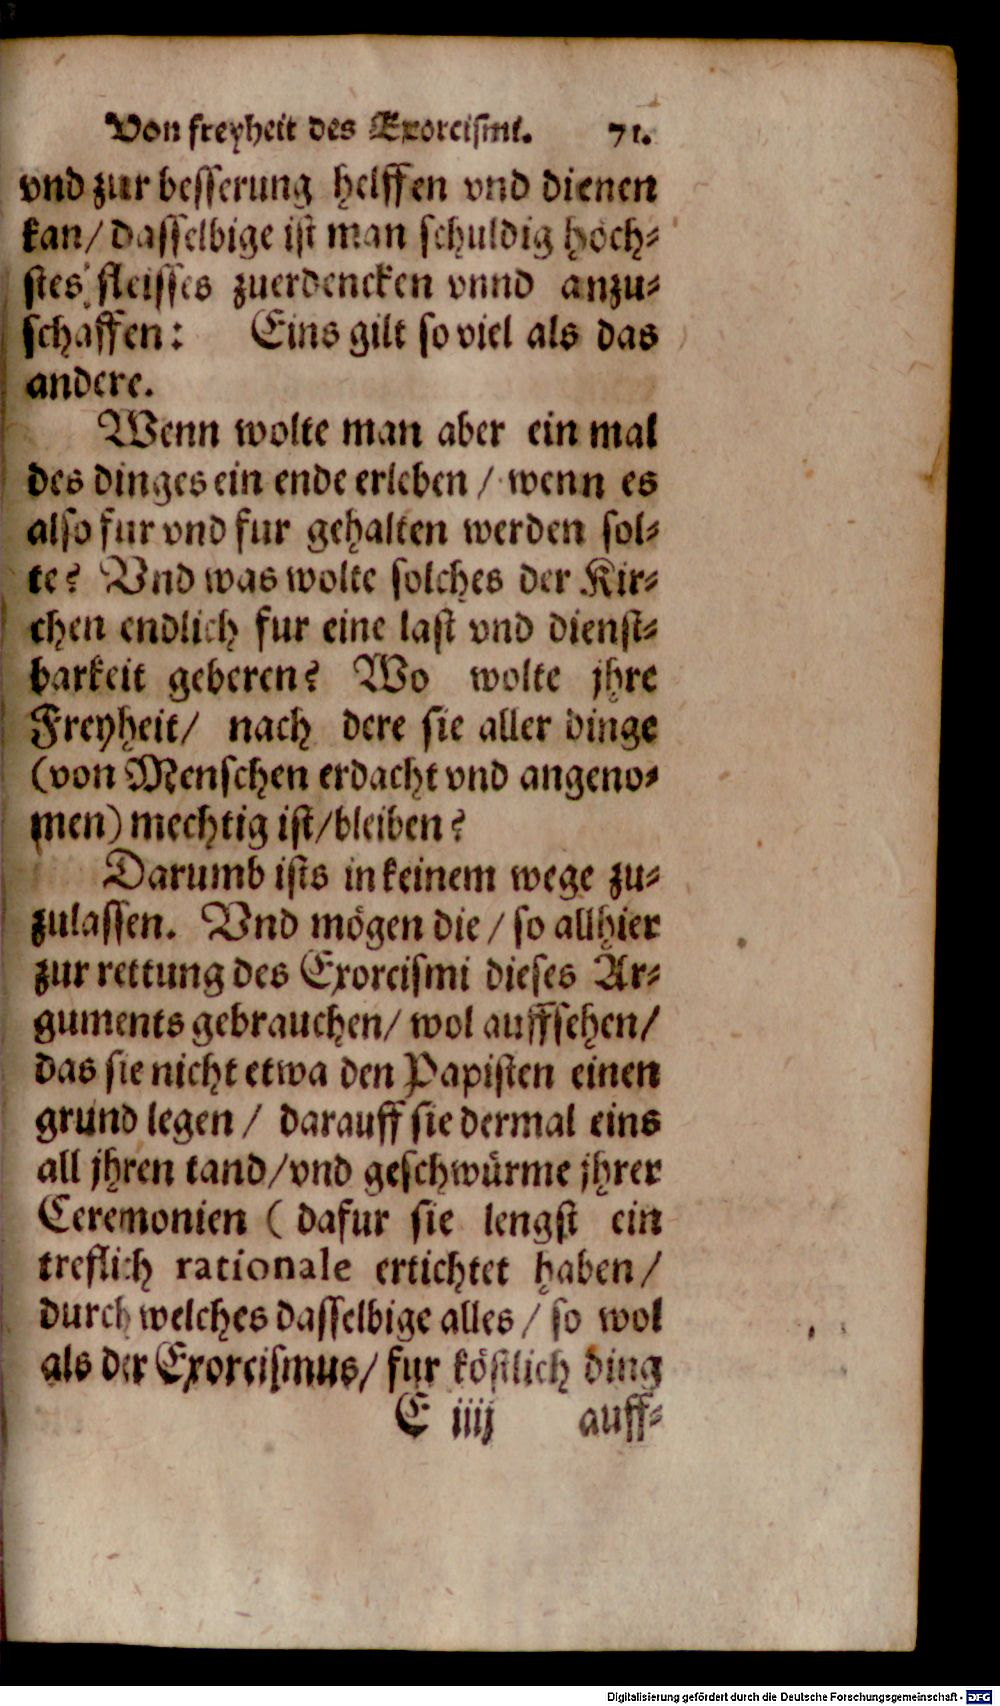 Von freyheit des Exorcismi. 71.
vnd zur besserung helffen vnd dienen
kan/ dasselbige ist man schuldig höch⸗
stes fleisses zuerdencken vnnd anzu⸗
schaffen: Eins gilt so viel als das
andere.
Wenn wolte man aber ein mal
des dinges ein ende erleben / wenn es
also fur vnd fur gehalten werden sol⸗
te? Vnd was wolte solches der Kir⸗
chen endlich fur eine last vnd dienst⸗
barkeit geberen? Wo wolte jhre
Freyheit/ nach dere sie aller dinge
(von Menschen erdacht vnd angeno⸗
men) mechtig ist/bleiben?
Darumb ists in keinem wege zu⸗
zulassen. Vnd mögen die / so allhier
zur rettung des Exorcismi dieses Ar⸗
guments gebrauchen/ wol auffsehen/
das sie nicht etwa den Papisten einen
grund legen / darauff sie dermal eins
all jhren tand/vnd geschwürme jhrer
Ceremonien ( dafur sie lengst ein
treflich rationale ertichtet haben/
durch welches dasselbige alles / so wol
als der Exorcismus/ fur köstlich ding
E iiij auff⸗
Digitalisierung gefördert durch die Deutsche Forschungsgemeinschaft - DFG